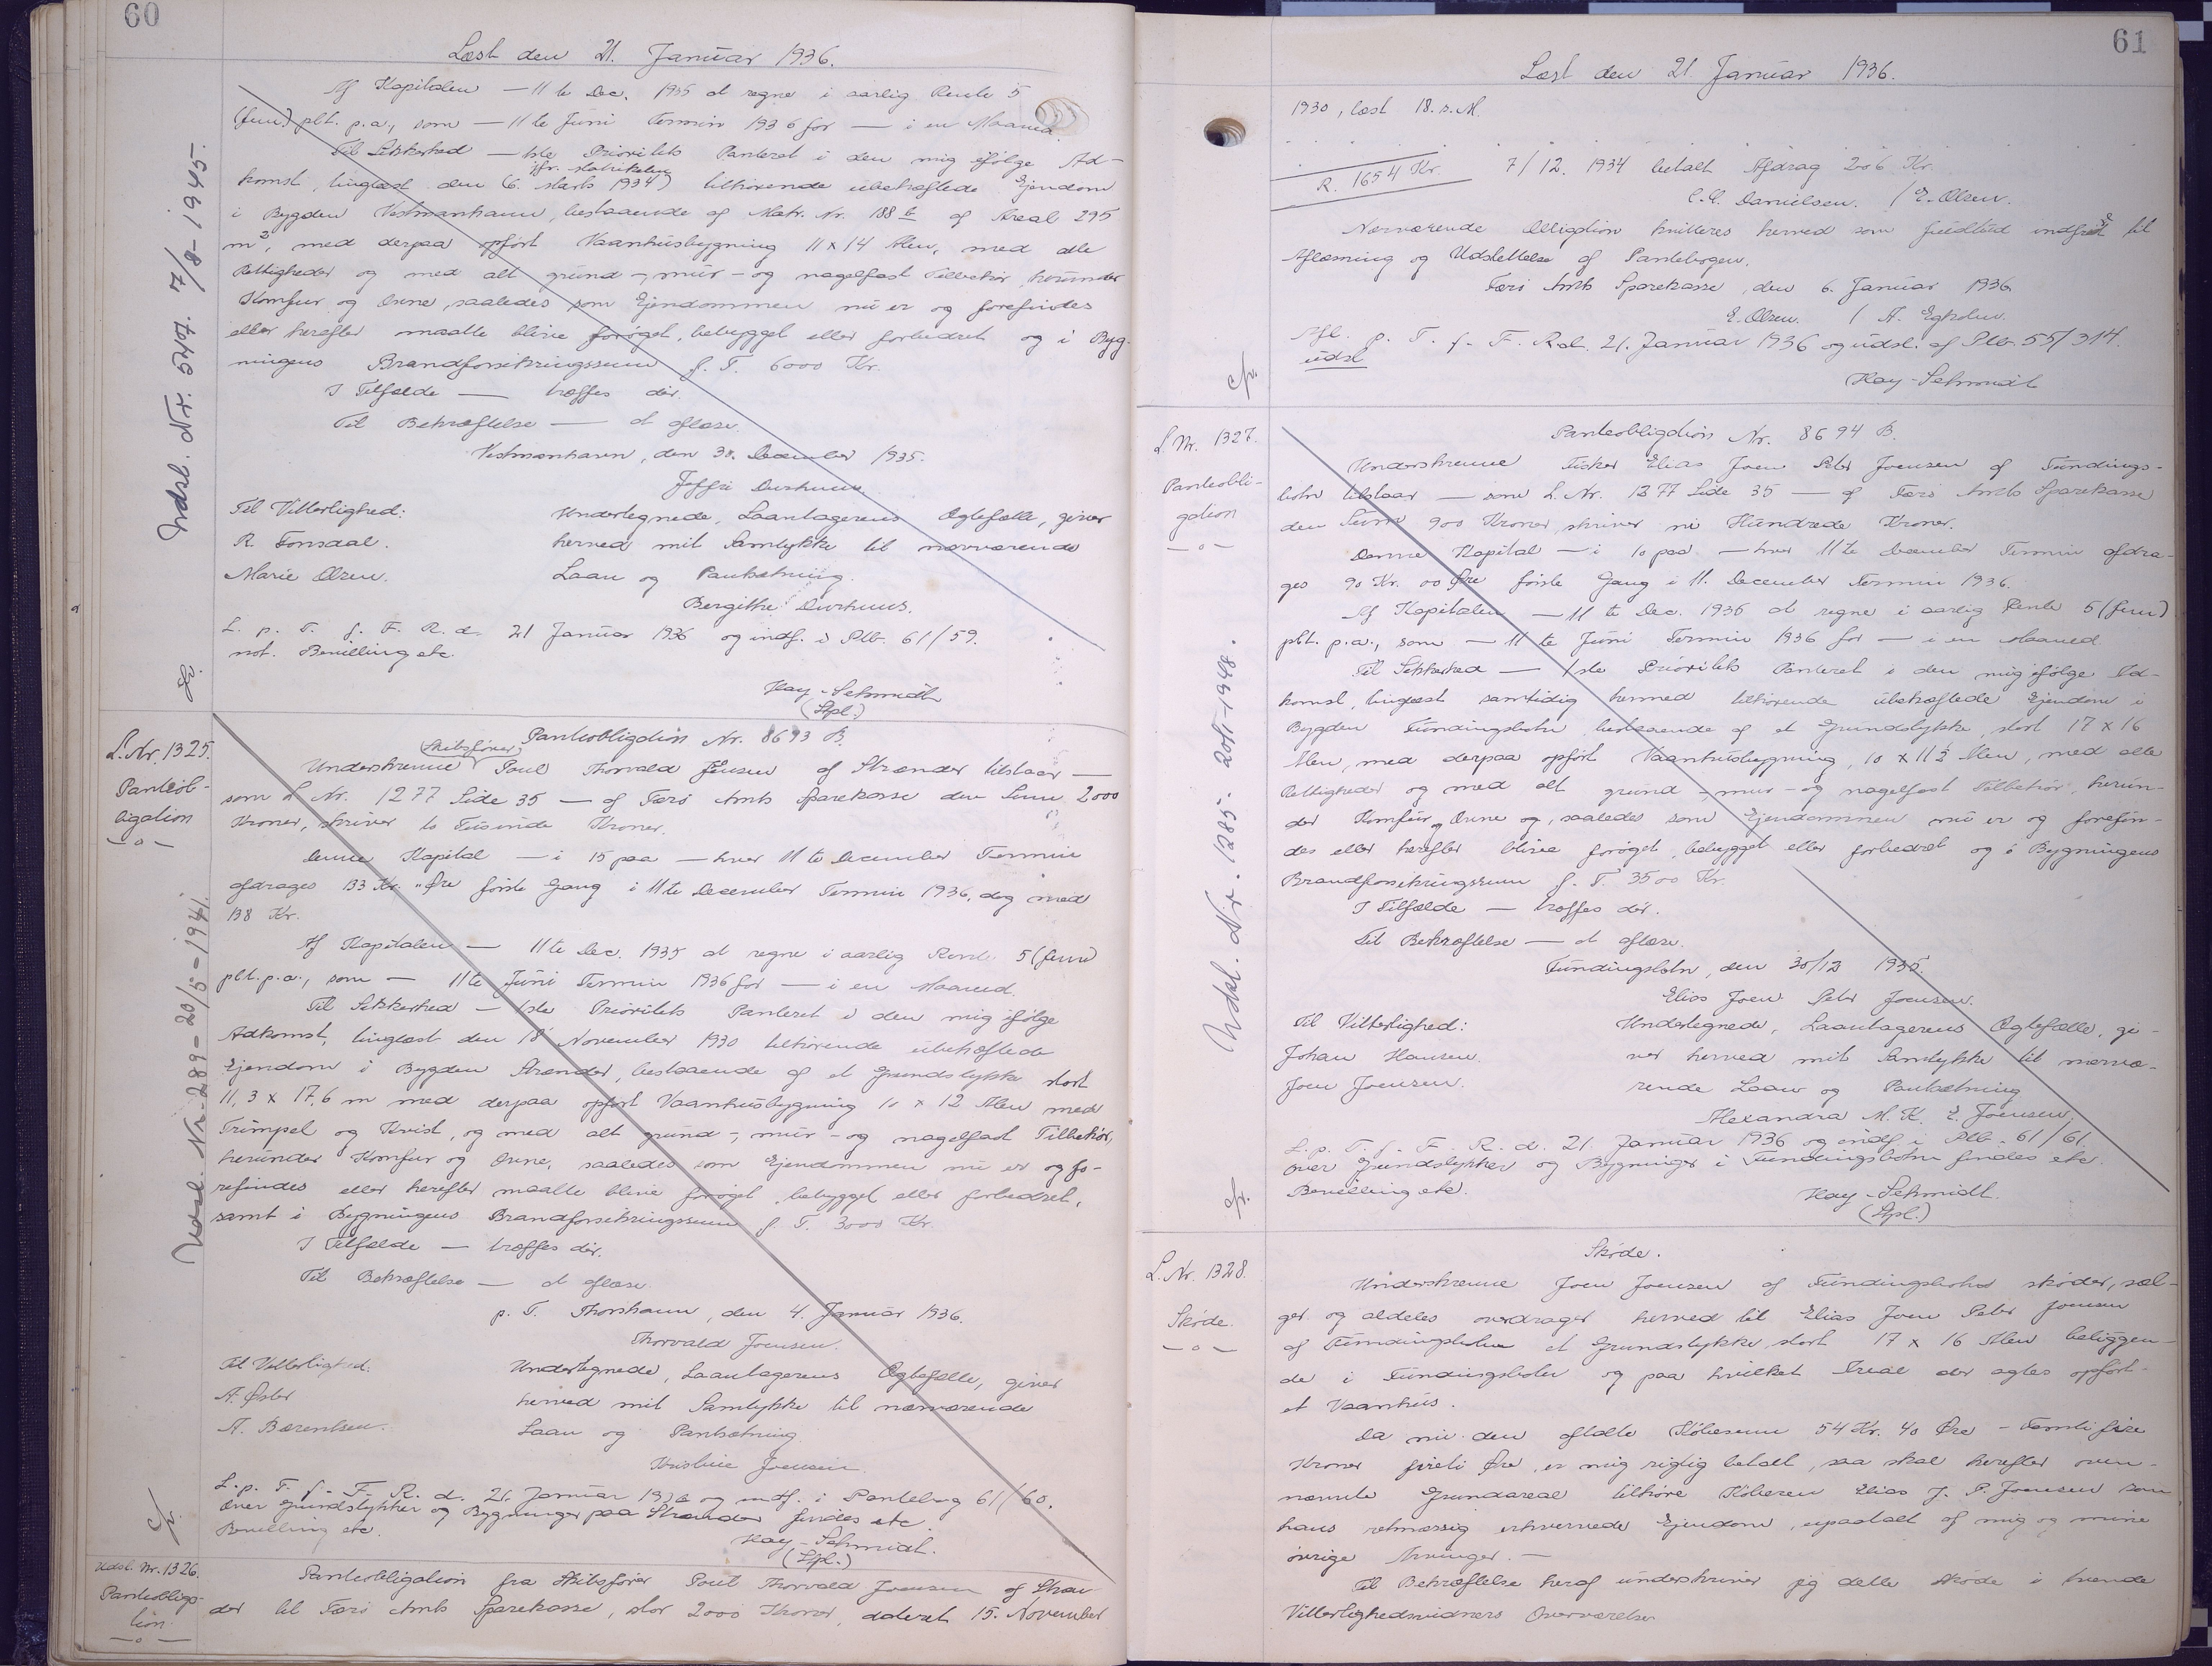 60
Læst den 21. Januar 1936.
Af Kapitalen — 11te Dec. 1935 at regne i aarlig Rente 5
(fem) pCt. p.a., som — 11te Juni Termin 1936 for — i en Maaned
Til Sikkerhed — 1ste Prioritets Panteret i den mig ifølge Ad-
jfr. Matrikulen
komst, tinglæst den (6. Marts 1934) tilhørende ubehæftede Ejendom
i Bygden Vestmanhavn, bestaaende af Matr. Nr. 188 b af Areal 295
m², med derpaa opført Vaaningsbygning 11 x 14 Alen, med alle
Rettigheder og med alt grund-, mur- og nagelfast Tilbehør, herunder
Komfur og Ovne, saaledes som Ejendommen nu er og forefindes
eller herefter maatte blive forøget, bebygget eller forbedret og i Byg-
ningens Brandforsikringssum p. T. 6000 Kr.
I Tilfælde — træffes dér.
Til Bekræftelse — at aflæse.
Vestmanhavn, den 30. December 1935.
Joffri Durhuus
Til Vitterlighed:
Undertegnede, Laantagerens Ægtefælle, giver
R. Tonsaal.
herved mit Samtykke til nærværende
Marie Olsen.
Laan og Pantsætning.
Bergithe Durhuus.
L. p. T. f. F. R. d. 21 Januar 1936 og indf. i Ptb. 61/59.
not. Bevilling etc.
Kay-Schmidt
(Spl.)
Udsl. Nr. 547. 7/8-1945.
L. Nr. 1325.
Panteob-
ligation
—o—
Panteobligation Nr. 8693 B.
Skibsfører
Underskrevne Poul Thorvald Joensen af Strænder tilstaar —
som L Nr. 1277 Side 35 — af Færø Amts Sparekasse den Sum 2000
Kroner, skriver to Tusinde Kroner.
Denne Kapital — i 15 paa — hver 11te December Termin
afdrages 133 Kr. „ Øre første Gang i 11te December Termin 1936, dog med
138 Kr.
Af Kapitalen — 11te Dec. 1935 at regne i aarlig Rente 5 (fem)
pCt. p.a., som — 11te Juni Termin 1936 for — i en Maaned.
Til Sikkerhed — 1ste Prioritets Panteret i den mig ifølge
Adkomst, tinglæst den 18 November 1930 tilhørende ubehæftede
Ejendom i Bygden Strænder, bestaaende af et Grundstykke stort
11,3 x 17,6 m med derpaa opført Vaanhusbygning 10 x 12 Alen med
Trimpel og Kvist, og med alt grund-, mur- og nagelfast Tilbehør,
herunder Komfur og Ovne, saaledes som Ejendommen nu er og fo-
refindes eller herefter maatte blive forøget, bebygget eller forbedret,
samt i Bygningens Brandforsikringssum p. T. 3000 Kr.
I Tilfælde — træffes dér.
Til Bekræftelse — at aflæse.
p. T. Thorshavn, den 4. Januar 1936.
Thorvald Joensen.
Til Vitterlighed:
Undertegnede, Laantagerens Ægtefælle, giver
A. Øster
herved mit Samtykke til nærværende
A. Bærentsen.
Laan og Pantsætning.
Kristine Joensen
L. p. T. f. F. R. d. 21. Januar 1936 og indf. i Pantebog 61/60.
Over Grundstykker og Bygninger paa Strænder findes etc
Bevilling etc.
Kay-Schmidt.
(Spl.)
Udsl. Nr. 289 - 20/5 - 1941.
Udsl. Nr. 1326.
Panteobliga-
tion
—o—
Panteobligation fra Skibsfører Poul Thorvald Joensen af Stræn
der til Færø Amts Sparekasse, stor 2000 Kroner, dateret 15. November
61
Læst den 21 Januar 1936.
1930, læst 18. s. M.
R. 1654 Kr. 7/12. 1934 betalt Afdrag 206 Kr.
C. C. Danielsen. / E. Olsen.
Nærværende Obligation kvitteres herved som fuldtud indfriet til
Aflæsning og Udslettelse af Pantebogen.
Færø Amts Sparekasse, den 6. Januar 1936
E. Olsen. / A. Egholm.
Afl. p. T. f. F. R. d. 21. Januar 1936 og udsl. af Ptb. 55/314.
udsl
Kay-Schmidt
L. Nr. 1327.
Panteobli-
gation
—o—
Panteobligation Nr. 8694 B.
Underskrevne Fisker Elias Joen Peter Joensen af Fundings-
botn tilstaar — som L. Nr. 1277 Side 35 — af Færø Amts Sparekasse
den Sum 900 Kroner, skriver ni Hundrede Kroner.
Denne Kapital — i 10 paa — hver 11te December Termin afdra-
ges 90 Kr. 00 Øre første Gang i 11. December Termin 1936.
Af Kapitalen — 11te Dec. 1936 at regne i aarlig Rente 5 (fem)
pCt. p.a., som — 11te Juni Termin 1936 for — i en Maaned
Til Sikkerhed — 1ste Prioritets Panteret i den mig ifølge Ad-
komst, tinglæst samtidig hermed tilhørende ubehæftede Ejendom i
Bygden Fundingsbotn, bestaaende af et Grundstykke, stort 17 x 16
Alen, med derpaa opført Vaanhusbygning, 10 x 11½ Alen, med alle
Rettigheder og med alt grund-, mur- og nagelfast Tilbehør, herun-
der Komfur og Ovne og, saaledes som Ejendommen nu er og forefin-
des eller herefter blive forøget, bebygget eller forbedret og i Bygningens
Brandforsikringssum p. T. 3500 Kr.
I Tilfælde — træffes dér.
Til Bekræftelse — at aflæse.
Fundingsbotn, den 30/12 1935.
Elias Joen Peter Joensen.
Til Vitterlighed:
Undertegnede, Laantagerens Ægtefælle, gi-
Johan Hansen.
ver herved mit Samtykke til nærvæ-
Joen Joensen.
rende Laan og Pantsætning
Alexandra M. K. E. Joensen,
L. p. T. f. F. R. d. 21. Januar 1936 og indf. i Ptb. 61/61.
Over Grundstykker og Bygninger i Fundingsbotn findes etc.
Bevilling etc.
Kay-Schmidt.
(Spl.)
Udsl. Nr. 1285. 20/1-1948.
L. Nr. 1328.
Skøde.
—o—
Skøde.
Underskrevne Joen Joensen af Fundingsbotn skøder, sæl-
ger og aldeles overdrager herved til Elias Joen Peter Joensen
af Fundingsbotn et Grundstykke, stort 17 x 16 Alen beliggen-
de i Fundingsbotn og paa hvilket Areal der agtes opført
et Vaanhus.
Da nu den aftalte Købesum 54 Kr. 40 Øre - Femti fire
Kroner fireti Øre, er mig rigtig betalt, saa skal herefter oven-
nævnte Grundareal tilhøre Køberen Elias J. P. Joensen som
hans retmæssig erhvervede Ejendom, upaatalt af mig og mine
øvrige Arvinger. —
Til Bekræftelse heraf underskriver jeg dette Skøde i tvende
Vitterlighedsvidners Overværelse